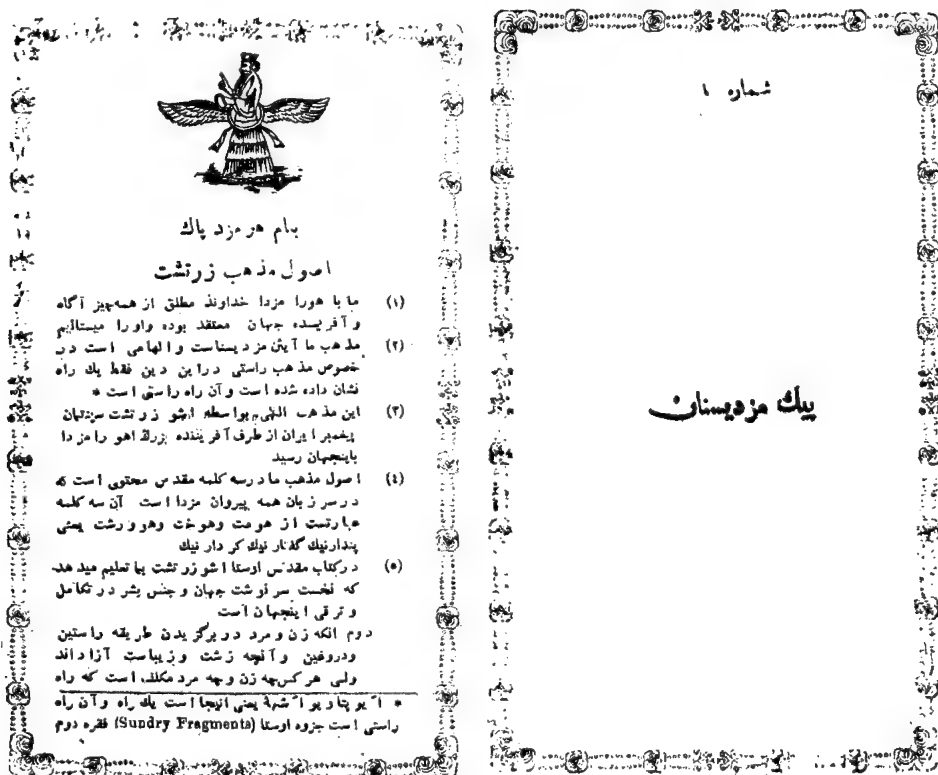 شماره ۱
پیك مزدیسنان
بنام هرمزد پاك
اصول مذهب زرتشت
(۱) ما با هورا مزدا خداوند مطلق از همه‌چیز آگاه
و آفریننده جهان معتقد بوده واورا میستائیم
(۲) مذهب ما آیتن مزدیسناست و الهامی است در
خصوص مذهب راستی در این دین فقط یك راه
نشان داده شده است و آن راه راستی است *
(۳) این مذهب الهی بواسطه اشو زرتشت سپنتمان
پیغمبر ایران از طرف آفریننده بزرگ اهورامزدا
باینجهان رسید
(٤) اصول مذهب ما در سه کلمه مقدس محتوی است که
در سر زبان همه پیروان مزدا است آن سه کلمه
عبارتست از هومت وهوخت وهوورشت یعنی
پندارنیك گفتارنیك کردارنیك
(۵) در کتاب مقدس اوستا اشو زرتشت بما تعلیم میدهد
که نخست سر نوشت جهان و جنس بشر در تکامل
و ترقی اینجهان است
دوم انکه زن و مرد در برگزیدن طریقه راستین
ودروغین و آنچه زشت وزیباست آزاداند
ولی هرکس‌چه زن وچه مرد مکلف است که راه
* یعنی اینجا است یك راه و آن راه
راستی است جزوه اوستا (Sundry Fragments) فقره دوم